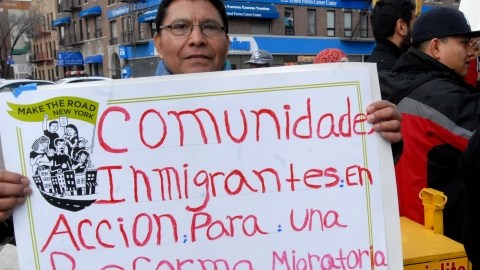 MAKE THE ROAD
NEW YORK
Comunidades
Inmigrantes en
Acción Para una
Reforma Migratoria